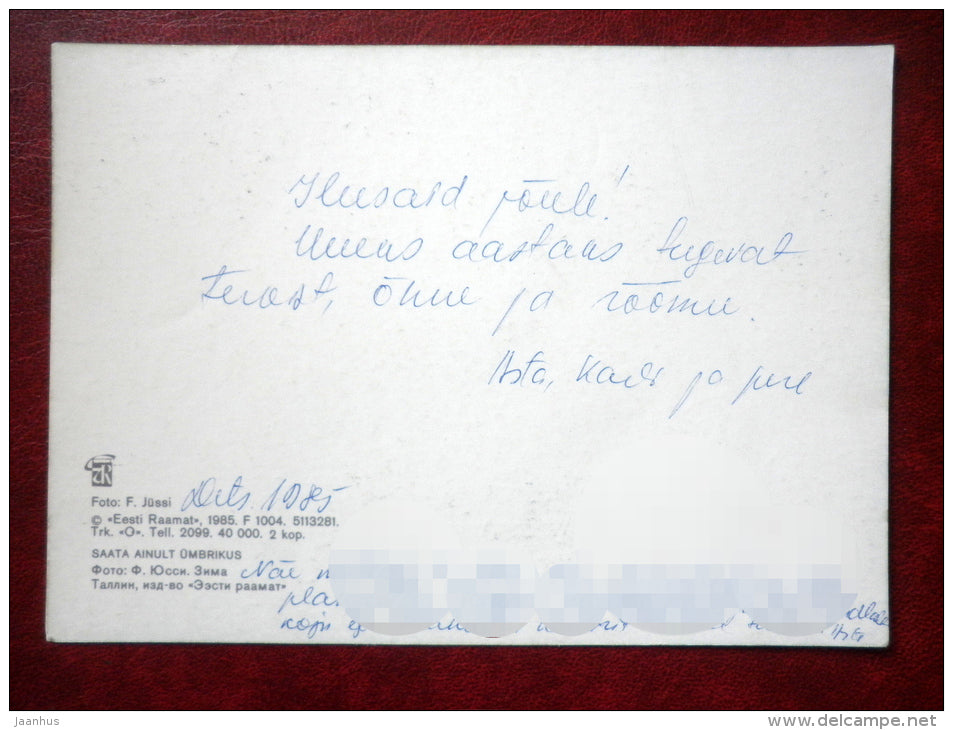 Ilusaid jõule!
Uueks aastaks tugevat
tervist, õnne ja rõõmu.
Asta, Karli ja pere
Foto: F. Jüssi Dets. 1985
© «Eesti Raamat», 1985. F 1004. 5113281.
Trk. «O». Tell. 2099. 40 000. 2 kop.
SAATA AINULT ÜMBRIKUS
Фото: Ф. Юсси. Зима
Таллин, изд-во «Ээсти раамат»
jaanhus
www.delcampe.net